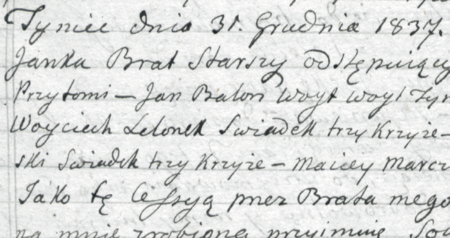 Tyniec dnia 31. Grudnia 1837.
Janka Brat Starszy odstępuiący
Przytomi – Jan Baloń Woyt Woyt Tyn
Woyciech Lelonek Swiadek trzy Krzyże –
ski Swiadek trzy Krzyże – Maciey Marcz
Jako tę Cessyą przez Brata mego
na mnie zrobioną przyimuię